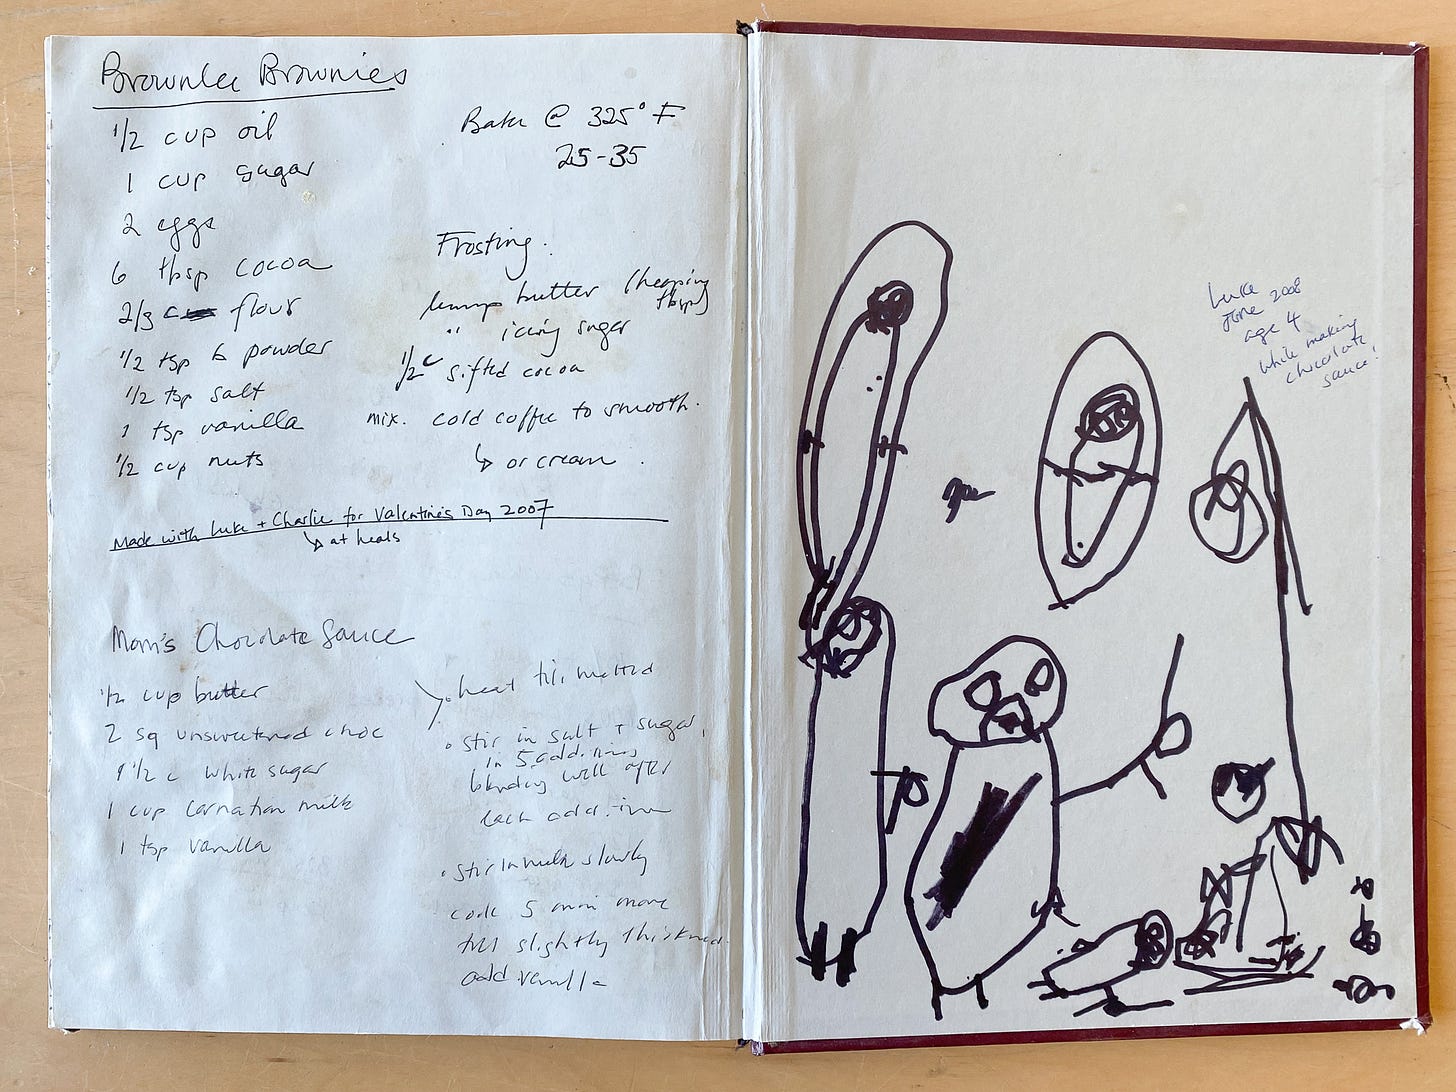 Brownlee Brownies
1/2 cup oil
1 cup sugar
2 eggs
6 tbsp cocoa
2/3 flour
1/2 tsp b powder
1/2 tsp salt
1 tsp vanilla
1/2 cup nuts
Bake @ 325° F
25-35
Frosting.
lump butter (heaping
tbsp)
" icing sugar
1/2 c sifted cocoa
mix. cold coffee to smooth.
↳ or cream.
Made with Luke + Charlie for Valentine's Day 2007
↳ at heals
Mom's Chocolate Sauce
1/2 cup butter
2 sq unsweetened choc
1 1/2 c white sugar
1 cup carnation milk
1 tsp vanilla
heat till melted
• stir in salt + sugar,
in 5 additions
blending well after
each addition
• stir in milk slowly
cook 5 min more
till slightly thickened
add vanilla
Luke
June 2008
age 4
while making
chocolate
sauce!